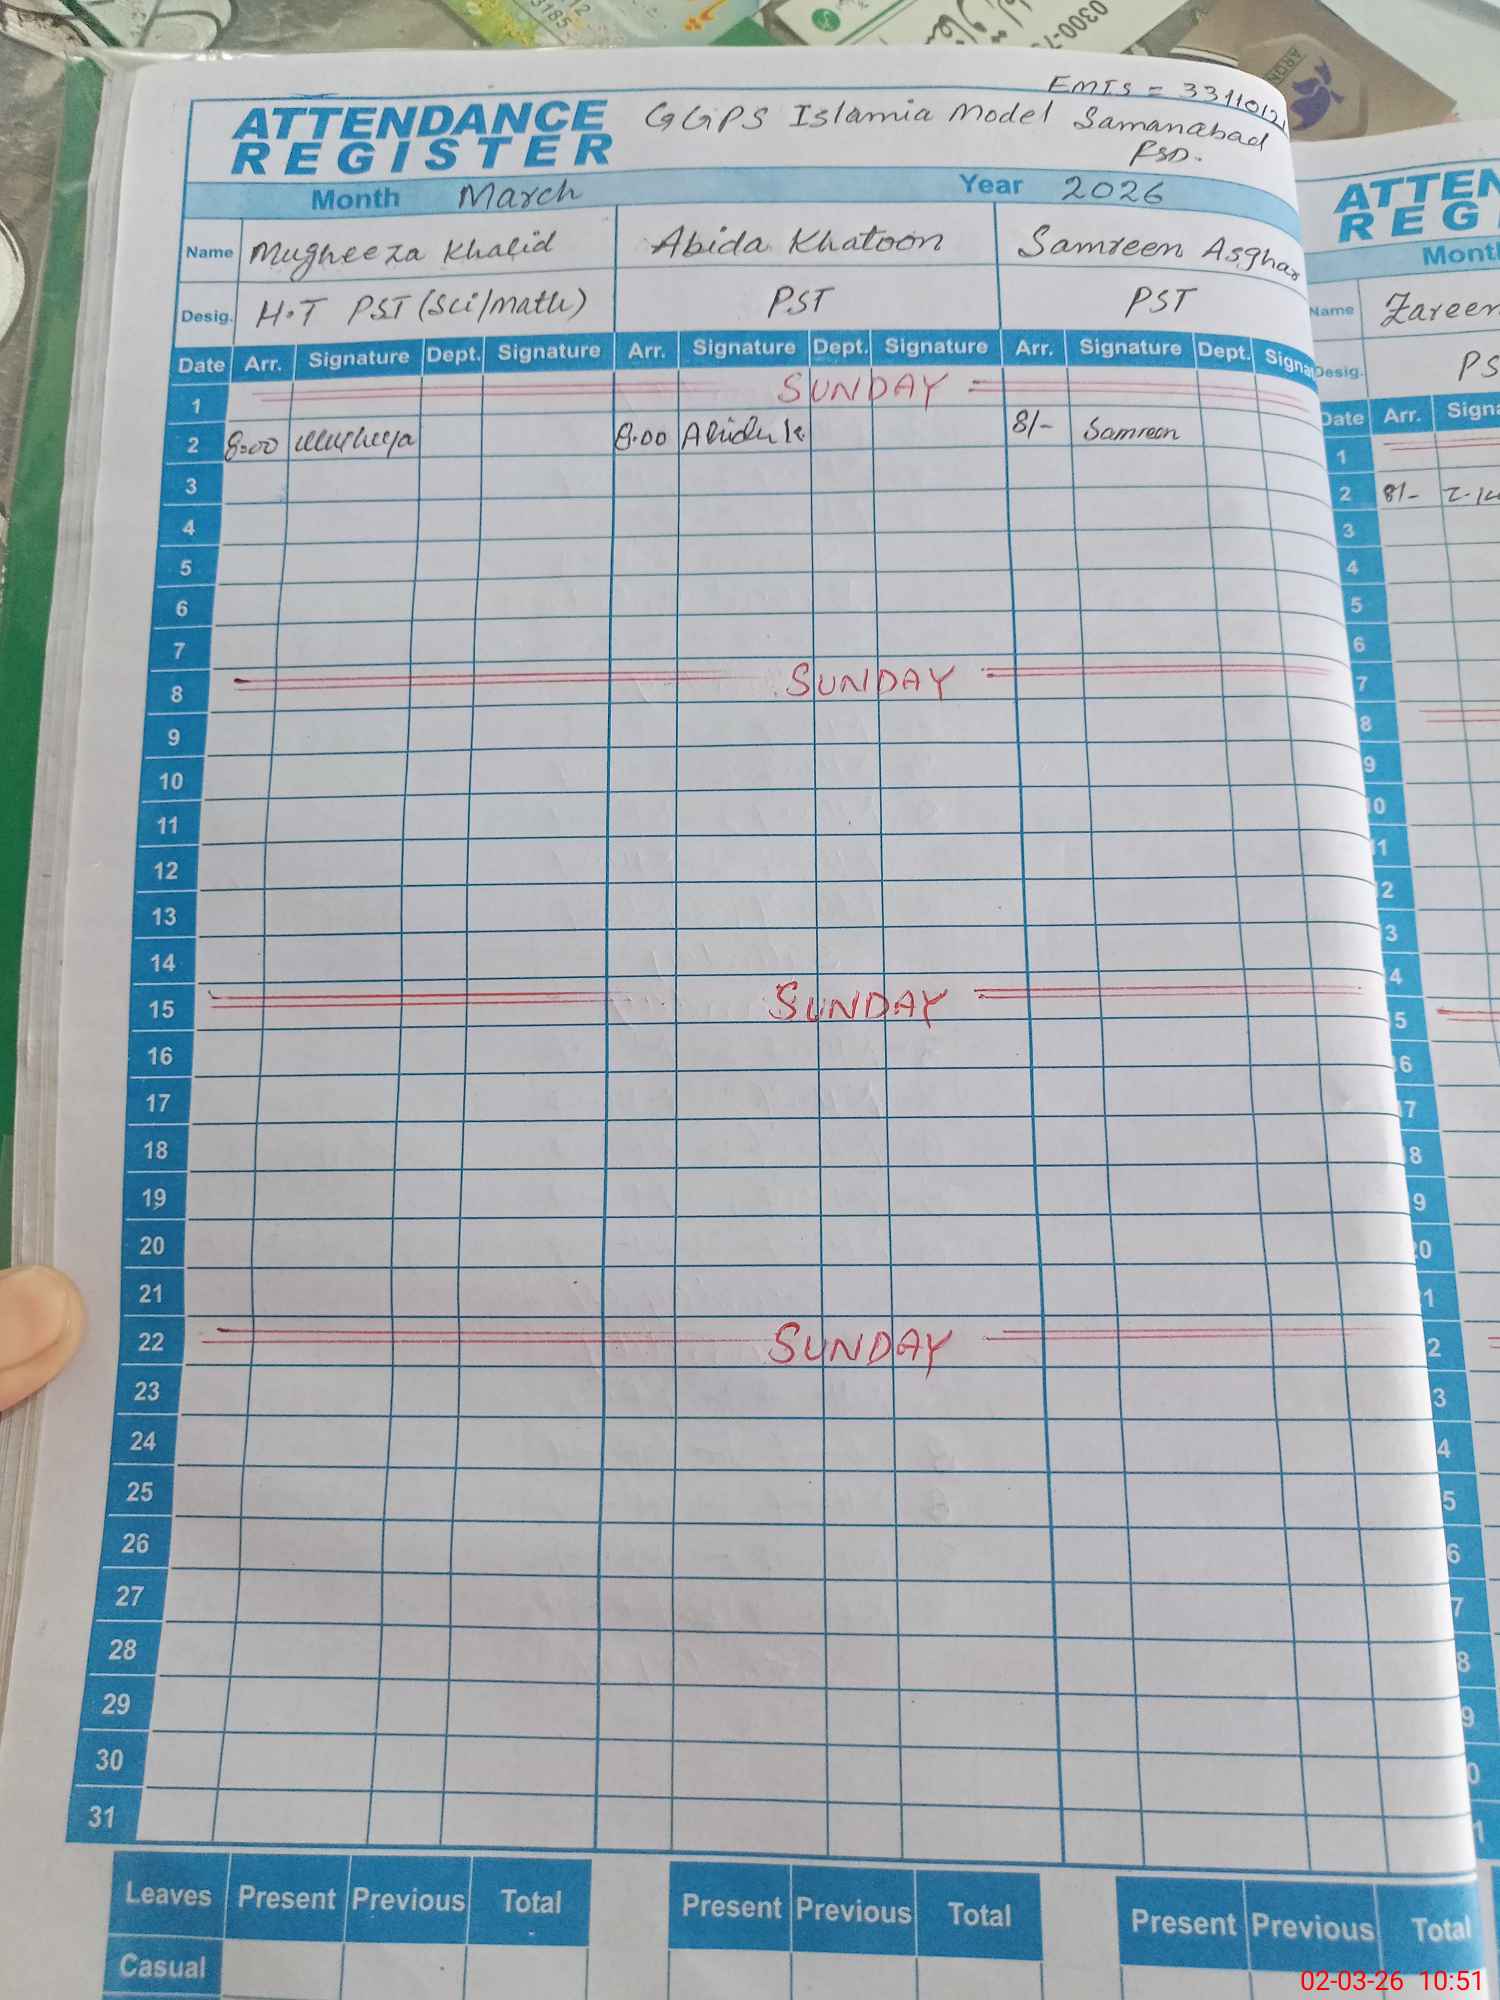 3185
12
0300-7
ARON
EMIS = 33110121
ATTENDANCE
REGISTER
GGPS Islamia Model Samanabad
FSD.
Month March Year 2026
Name Mugheeza Khalid Abida Khatoon Samreen Asghar
Desig. H.T PST (Sci/Math) PST PST
Date Arr. Signature Dept. Signature Arr. Signature Dept. Signature Arr. Signature Dept. Signa
1 SUNDAY
2 8:00 Mugheeza 8.00 Abida k 8/- Samreen
3
4
5
6
7
8 SUNDAY
9
10
11
12
13
14
15 SUNDAY
16
17
18
19
20
21
22 SUNDAY
23
24
25
26
27
28
29
30
31
Leaves Present Previous Total Present Previous Total Present Previous Total
Casual
ATTEN
REG
Month
Name Zareen
Desig. PS
Date Arr. Signa
1
2 8/-
3
4
5
6
7
8
9
10
11
12
13
14
15
16
17
18
19
20
21
22
23
24
25
26
27
28
29
30
31
02-03-26 10:51